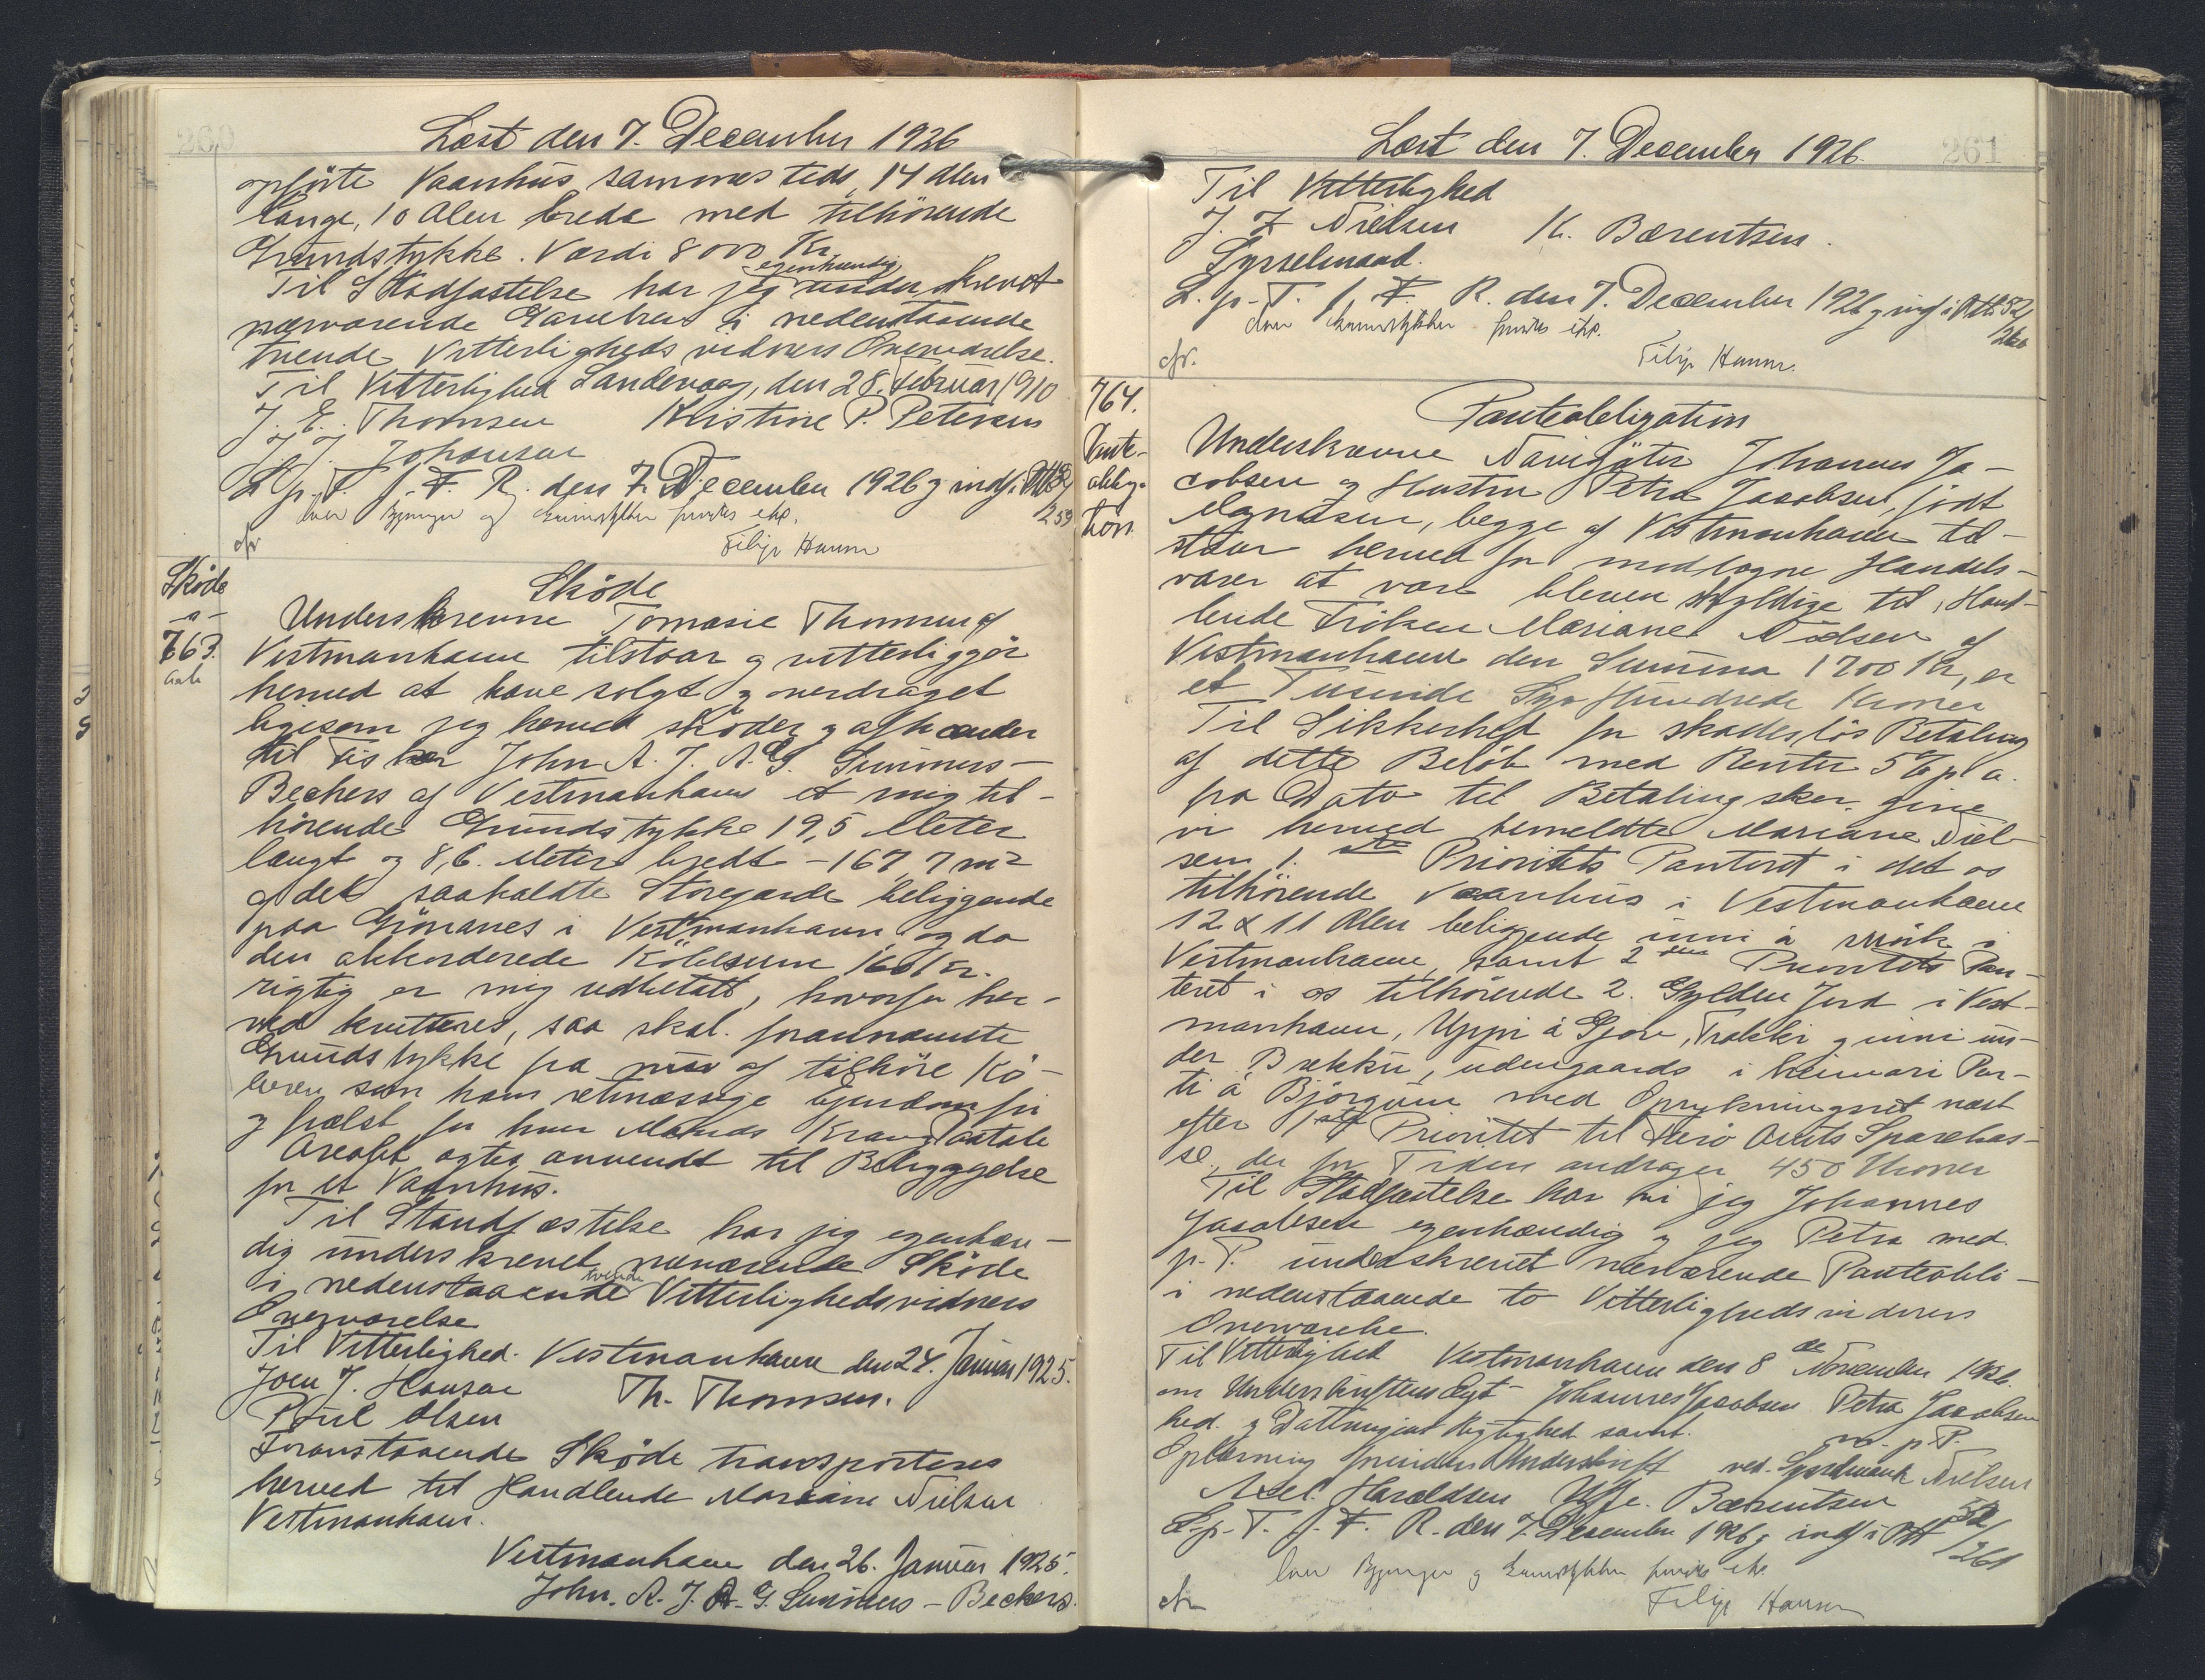 260
Læst den 7. December 1926
opførte Vaanhus sammesteds, 14 Alen
lange, 10 Alen brede med tilhörende
Grundstykke. Værdi 8000 Kr.
Til Stadfæstelse har jeg egenhændig underskrevet
nærværende Gavebrev i nedenstaaende
tvende Vitterlighedsvidners Overværelse.
Til Vitterlighed Sandevaag, den 28. Februar 1910
J. E. Thomsen Kristine P. Petersen
J. J. Johansen
L. p. T. f. F. R. den 7. December 1926 og indf. i Ptt 52/259
Over Bygninger og Grundstykker findes ikke.
cfr. Filip Hansen
Sköde
-a-
763.
Sköde
Underskrevne Tomasie Thomsen af
Vestmanhavn tilstaar og vitterliggör
herved at have solgt og overdraget
ligesom jeg herved sköder og afhænder
til Fisker John A. J. A. G. Summers-
Beckers af Vestmanhavn et mig til-
hörende Grundstykke 19,5 Meter
langt og 8,6. Meter bredt - 167,7 m2
af det saakaldte Storegarde beliggende
paa Grönanes i Vestmanhavn og da
den akkorderede Köbesum 160 Kr.
rigtig er mig udbetalt, hvorfor her-
ved kvitteres, saa skal forannævnte
Grundstykke fra nu af tilhöre Kö-
beren som hans retmæssige Ejendom fri
og frelst for hver Mands Krav og Paatale
Arealet agtes anvendt til Bebyggelse
for et Vaanhus.
Til Standfæstelse har jeg egenhæn-
dig underskrevet nærværende Sköde
i nedenstaaende tvende Vitterlighedsvidners
Overværelse
Til Vitterlighed. Vestmanhavn den 24. Januar 1925.
Joen J. Hansen Th. Thomsen.
Poul Olsen
Foranstaaende Sköde transporteres
herved til Handlende Mariane Nielsen
Vestmanhavn.
Vestmanhavn den 26. Januar 1925.
John. A. J. A. G. Summers - Beckers.
261
Læst den 7. December 1926.
Til Vitterlighed
J. F. Nielsen K. Bærentsen.
Sysselmand.
L. p. T. f. F. R. den 7. December 1926 og indf. i Ptt 52/260
Over Grundstykker findes ikke.
cfr. Filip Hansen.
764.
Pante-
oblig-
tion
Panteobligation
Underskrevne Navigatör Johannes Ja-
cobsen og Hustru Petra Jacobsen, födt
Magnusen, begge af Vestmanhavn til-
staar herved for modtagne Handels-
varer at være bleven skyldige til, Hand-
lende Fröken Mariane Nielsen af
Vestmanhavn den Summa 1700 Kr, er
et Tusinde Syv Hundrede Kroner
Til Sikkerhed for skadeslös Betaling
af dette Belöb med Renter 5% p. a.
fra Dato til Betaling sker, give
vi herved bemeldte Mariane Niel-
sen 1. ste Prioritets Panteret i det os
tilhörende Vaanhus i Vestmanhavn
12 x 11 Alen beliggende inni á mörk i
Vestmanhavn, samt 2 den Prioritets Pan-
teret i os tilhörende 2. Gylden Jord i Vest-
manhavn, Uppi á Gjov, Trakki og inni un-
der Brekku, udengaards i heimari Par-
ti á Björgum med Oprykningsret næst
efter 1ste Prioritet til Færö Amts Sparekas-
se, der for Tiden andrager 450 Kroner
Til Stadfæstelse har vi jeg Johannes
Jacobsen egenhændig og jeg Petra med
p. P. underskrevet nærværende Panteobli-
i nedenstaaende to Vitterlighedsvidners
Overværelse.
Til Vitterlighed Vestmanhavn den 8 de November 1926.
om Underskriftens Ægt- Johannes Jacobsen Petra Jacobsen
hed og Datteringens Rigtighed samt. m. p. P.
Oplæsning forinden Underskrift ved. Sysselmand Nielsen
Axel. Haraldsen Uffe. Bærentsen
L. p. T. f. F. R. den 7. December 1926 og indf. i Ptt 52/261
Over Bygninger og Grundstykker findes ikke
cfr Filip Hansen